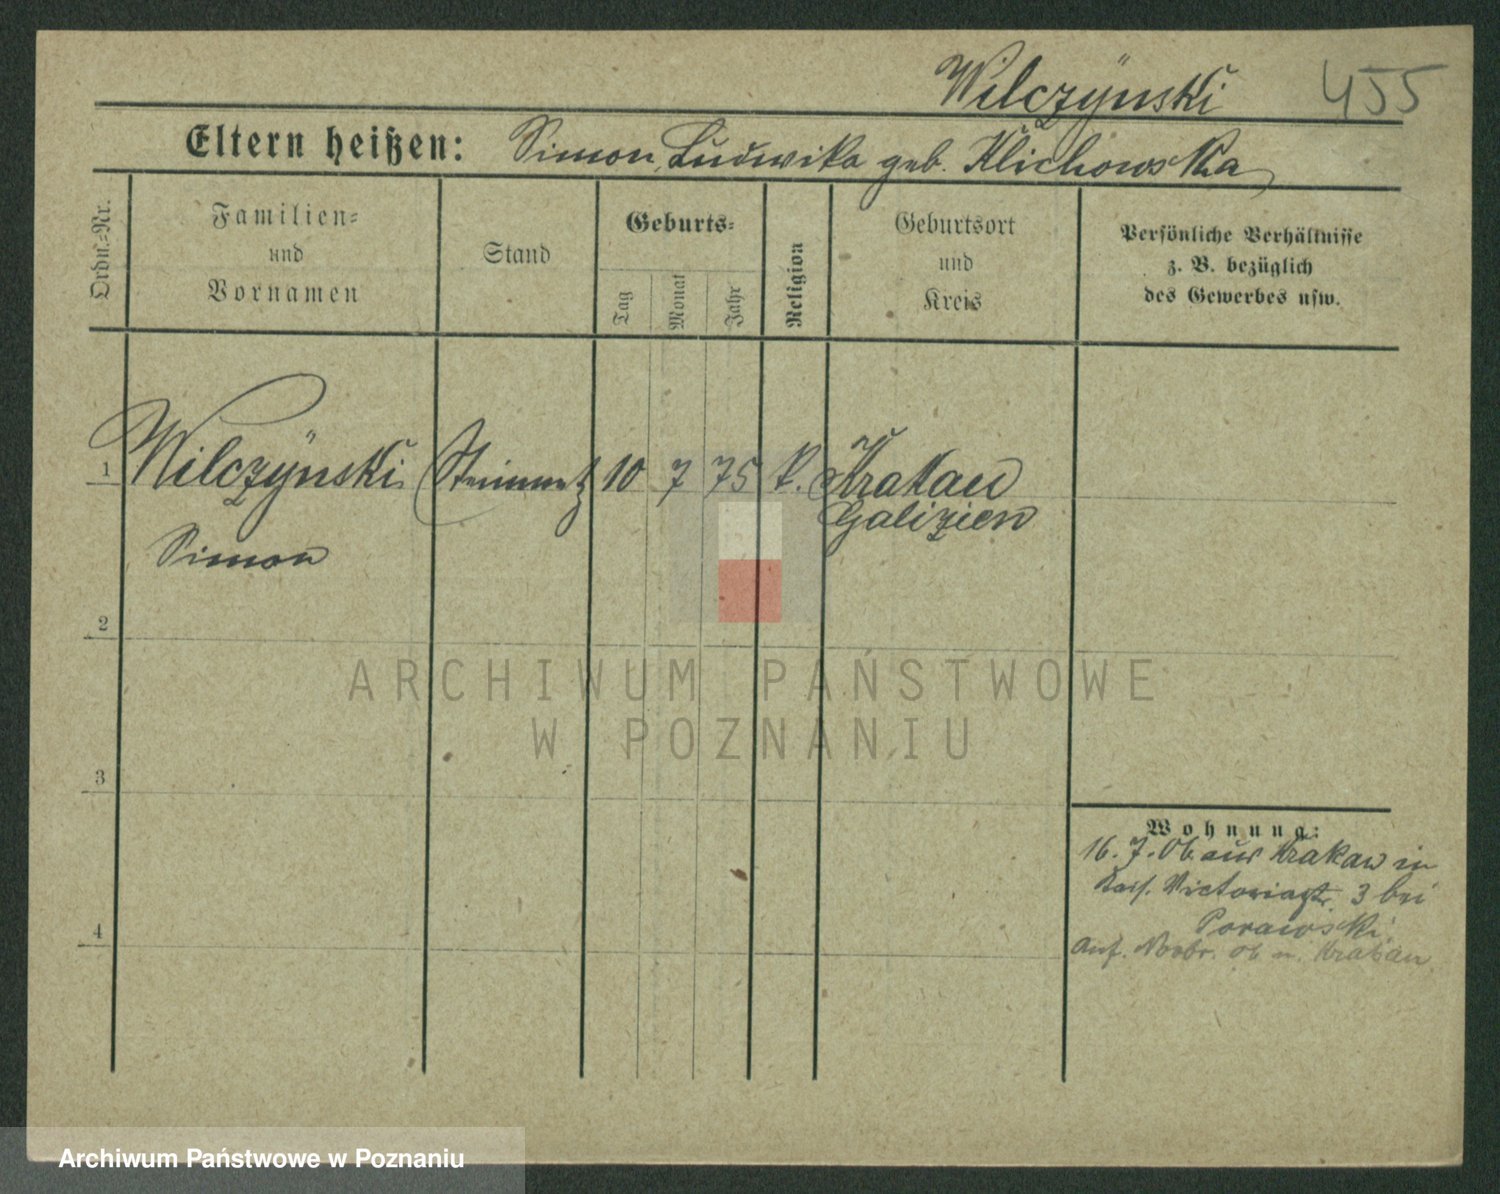 Wilczÿnski 455
Eltern heißen: Simon, Ludwika geb. Klichowska
Ordn.-Nr.
Familien-
und
Vornamen
Stand
Geburts-
Tag
Monat
Jahr
Religion
Geburtsort
und
Kreis
Persönliche Verhältnisse
z. B. bezüglich
des Gewerbes usw.
1 Wilczÿnski Steinmetz 10 7 75 k. Krakau
Galizien
Simon
2
3
4
Wohnung:
16. 7. 06 aus Krakau in
Victoriastr. 3 bei
Porawski
Anf. Novbr. 06 n. Krakau
ARCHIWUM PAŃSTWOWE
W POZNANIU
Archiwum Państwowe w Poznaniu